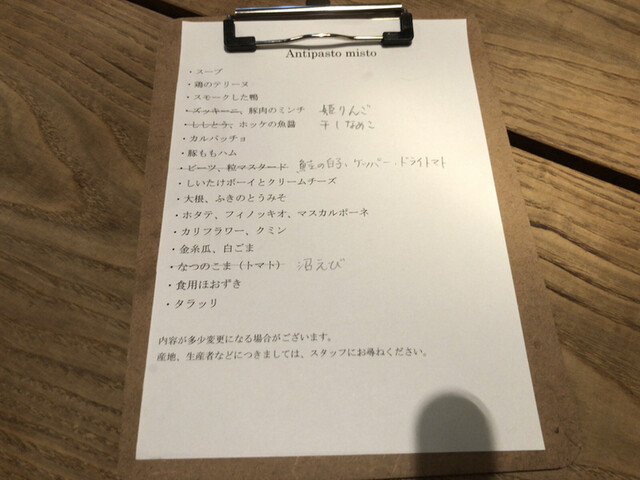 Antipasto misto
・スープ
・鶏のテリーヌ
・スモークした鴨
・ズッキーニ、豚肉のミンチ 姫りんご
・ししとう、ホッケの魚醤 干しなめこ
・カルパッチョ
・豚ももハム
・ビーツ、粒マスタード 鮭の白子、ケッパー、ドライトマト
・しいたけボーイとクリームチーズ
・大根、ふきのとうみそ
・ホタテ、フィノッキオ、マスカルポーネ
・カリフラワー、クミン
・金糸瓜、白ごま
・なつのこま（トマト） 沼えび
・食用ほおずき
・タラッリ
内容が多少変更になる場合がございます。
産地、生産者などにつきましては、スタッフにお尋ねください。